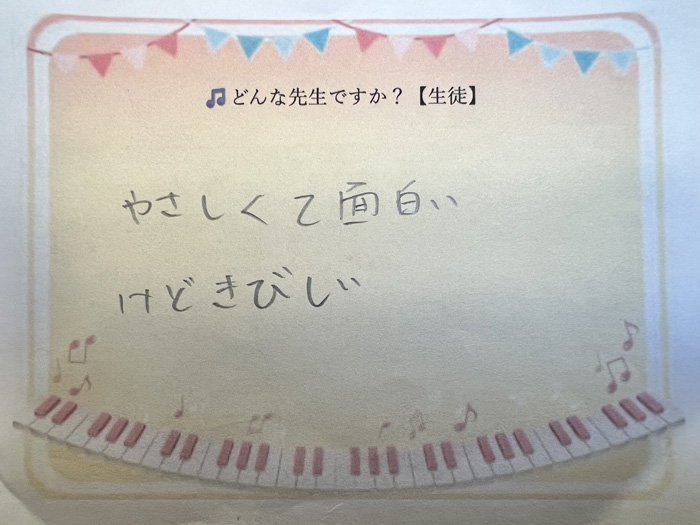 🎵どんな先生ですか？【生徒】
やさしくて面白い
けどきびしい